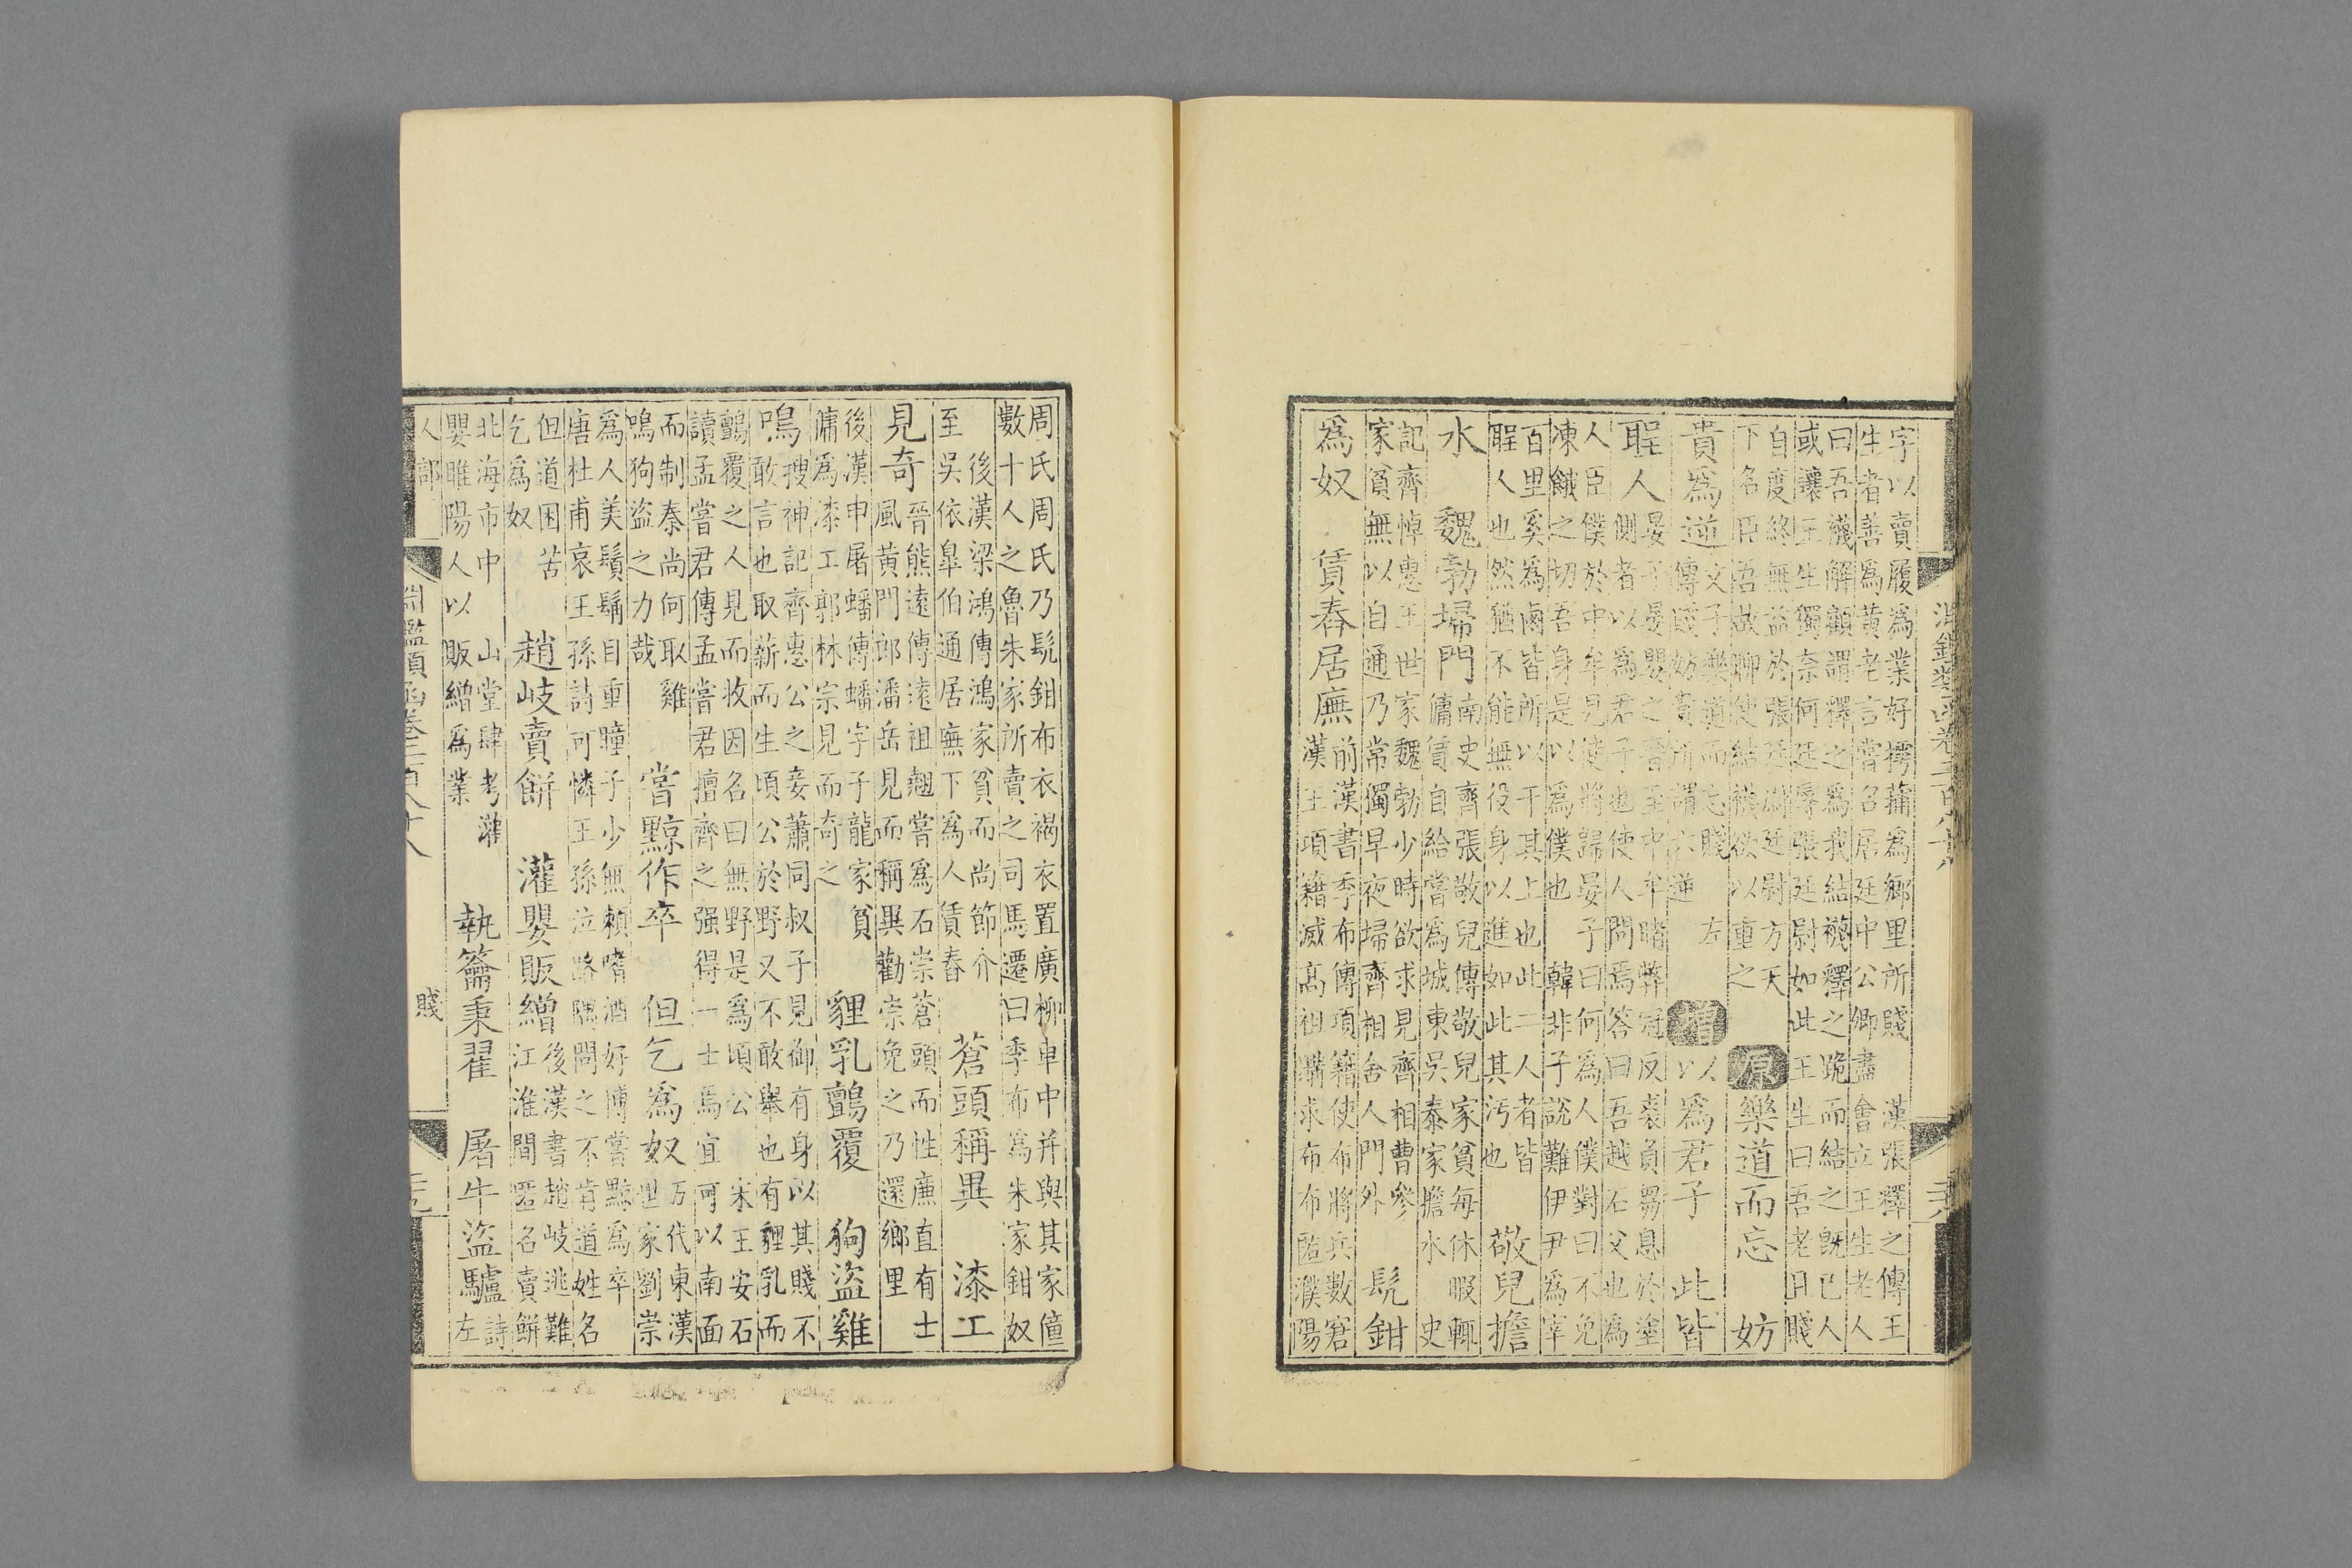 字以賣履爲業好摴蒱爲鄉里所賤　漢張釋之傳王
生者善爲黄老言嘗名居廷中公卿盡會立王生老人
曰吾襪解顧謂釋之爲我結襪釋之跪而結之既已人
或讓王生獨奈何廷辱張廷尉如此王生曰吾老且賤
自度終無益於張廷尉廷尉方天
下名臣吾故聊使結襪欲以重之
原樂道而忘　妨
貴爲逆
文子樂道而忘賤　左
傳賤妨貴所謂六逆
增以爲君子　此皆
聖人
晏子晏嬰之晉至中牟睹弊冠反裘負芻息於塗
側者以爲君子也使人問焉答曰吾越石父也爲
人臣僕於中牟見使將歸晏子曰何爲人僕對曰不免
凍餓之切吾身是以爲僕也　韓非子說難伊尹爲宰
百里奚爲鹵皆所以干其上也此二人者皆
聖人也然猶不能無役身以進如此其汚也
敬兒擔
水　魏勃埽門
南史齊張敬兒傳敬兒家貧每休暇輒
傭賃自給嘗爲城東吳泰家擔水　史
記齊悼惠王世家魏勃少時欲求見齊相曹參
家貧無以自通乃常獨早夜埽齊相舍人門外
髠鉗
爲奴　賃舂居廡
前漢書季布傳項籍使布將兵數窘
漢王項籍滅高祖購求布布匿濮陽
周氏周氏乃髠鉗布衣褐衣置廣柳車中并與其家僮
數十人之魯朱家所賣之司馬遷曰季布爲朱家鉗奴
後漢梁鴻傳鴻家貧而尚節介
至吳依臯伯通居廡下爲人賃舂
蒼頭稱異　漆工
見奇
晉熊遠傳遠祖翹嘗爲石崇蒼頭而性廉直有士
風黄門郎潘岳見而稱異勸崇免之乃還鄉里
後漢申屠蟠傳蟠字子龍家貧
傭爲漆工郭林宗見而奇之
貍乳鸇覆　狗盜雞
鳴
搜神記齊惠公之妾蕭同叔子見御有身以其賤不
敢言也取薪而生頃公於野又不敢舉也有貍乳而
鸇覆之人見而收因名曰無野是爲頃公　宋王安石
讀孟嘗君傳孟嘗君擅齊之强得一士焉宜可以南面
而制秦尚何取雞
鳴狗盜之力哉
當黥作卒　但乞爲奴
万代東漢
世家劉崇
爲人美鬚髯目重瞳子少無賴嗜酒好博嘗黥爲卒
唐杜甫哀王孫詩可憐王孫泣路隅問之不肯道姓名
但道困苦
乞爲奴
趙岐賣餅　灌嬰販繒
後漢書趙岐逃難
江淮間匿名賣餅
北海市中　山堂肆考灌
嬰睢陽人以販繒爲業
執籥秉翟　屠牛盜驢
詩
左
人部
淵鑑類函卷二百八十八
賤